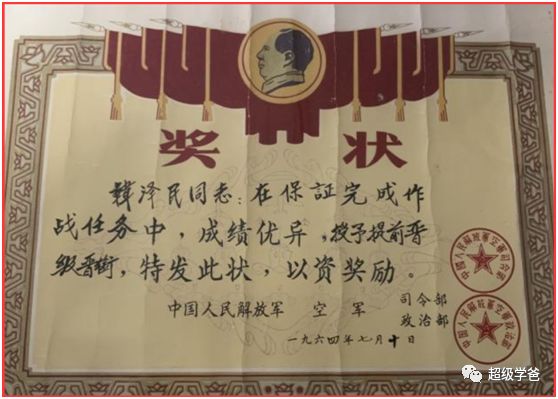 奖状
韓泽民同志：在保証完成作
战任务中，成绩优异，授予提前晋
级晋衔，特发此状，以资奖励。
中国人民解放军 空军 司令部
政治部
一九六四年七月十日
中国人民解放军空军司令部
中国人民解放军空军政治部
超级学爸